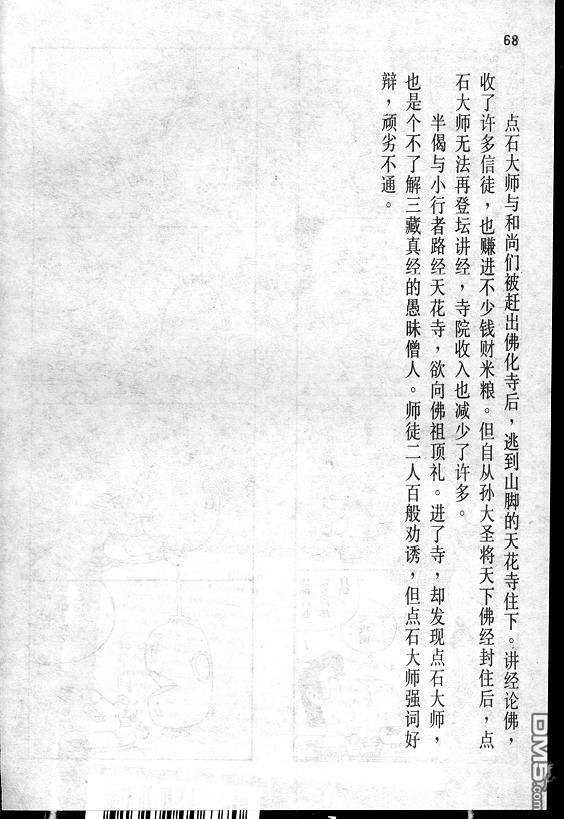 68
点石大师与和尚们被赶出佛化寺后，逃到山脚的天花寺住下。讲经论佛，
收了许多信徒，也赚进不少钱财米粮。但自从孙大圣将天下佛经封住后，点
石大师无法再登坛讲经，寺院收入也减少了许多。
半偈与小行者路经天花寺，欲向佛祖顶礼。进了寺，却发现点石大师，
也是个不了解三藏真经的愚昧僧人。师徒二人百般劝诱，但点石大师强词好
辩，顽劣不通。
DM5.com